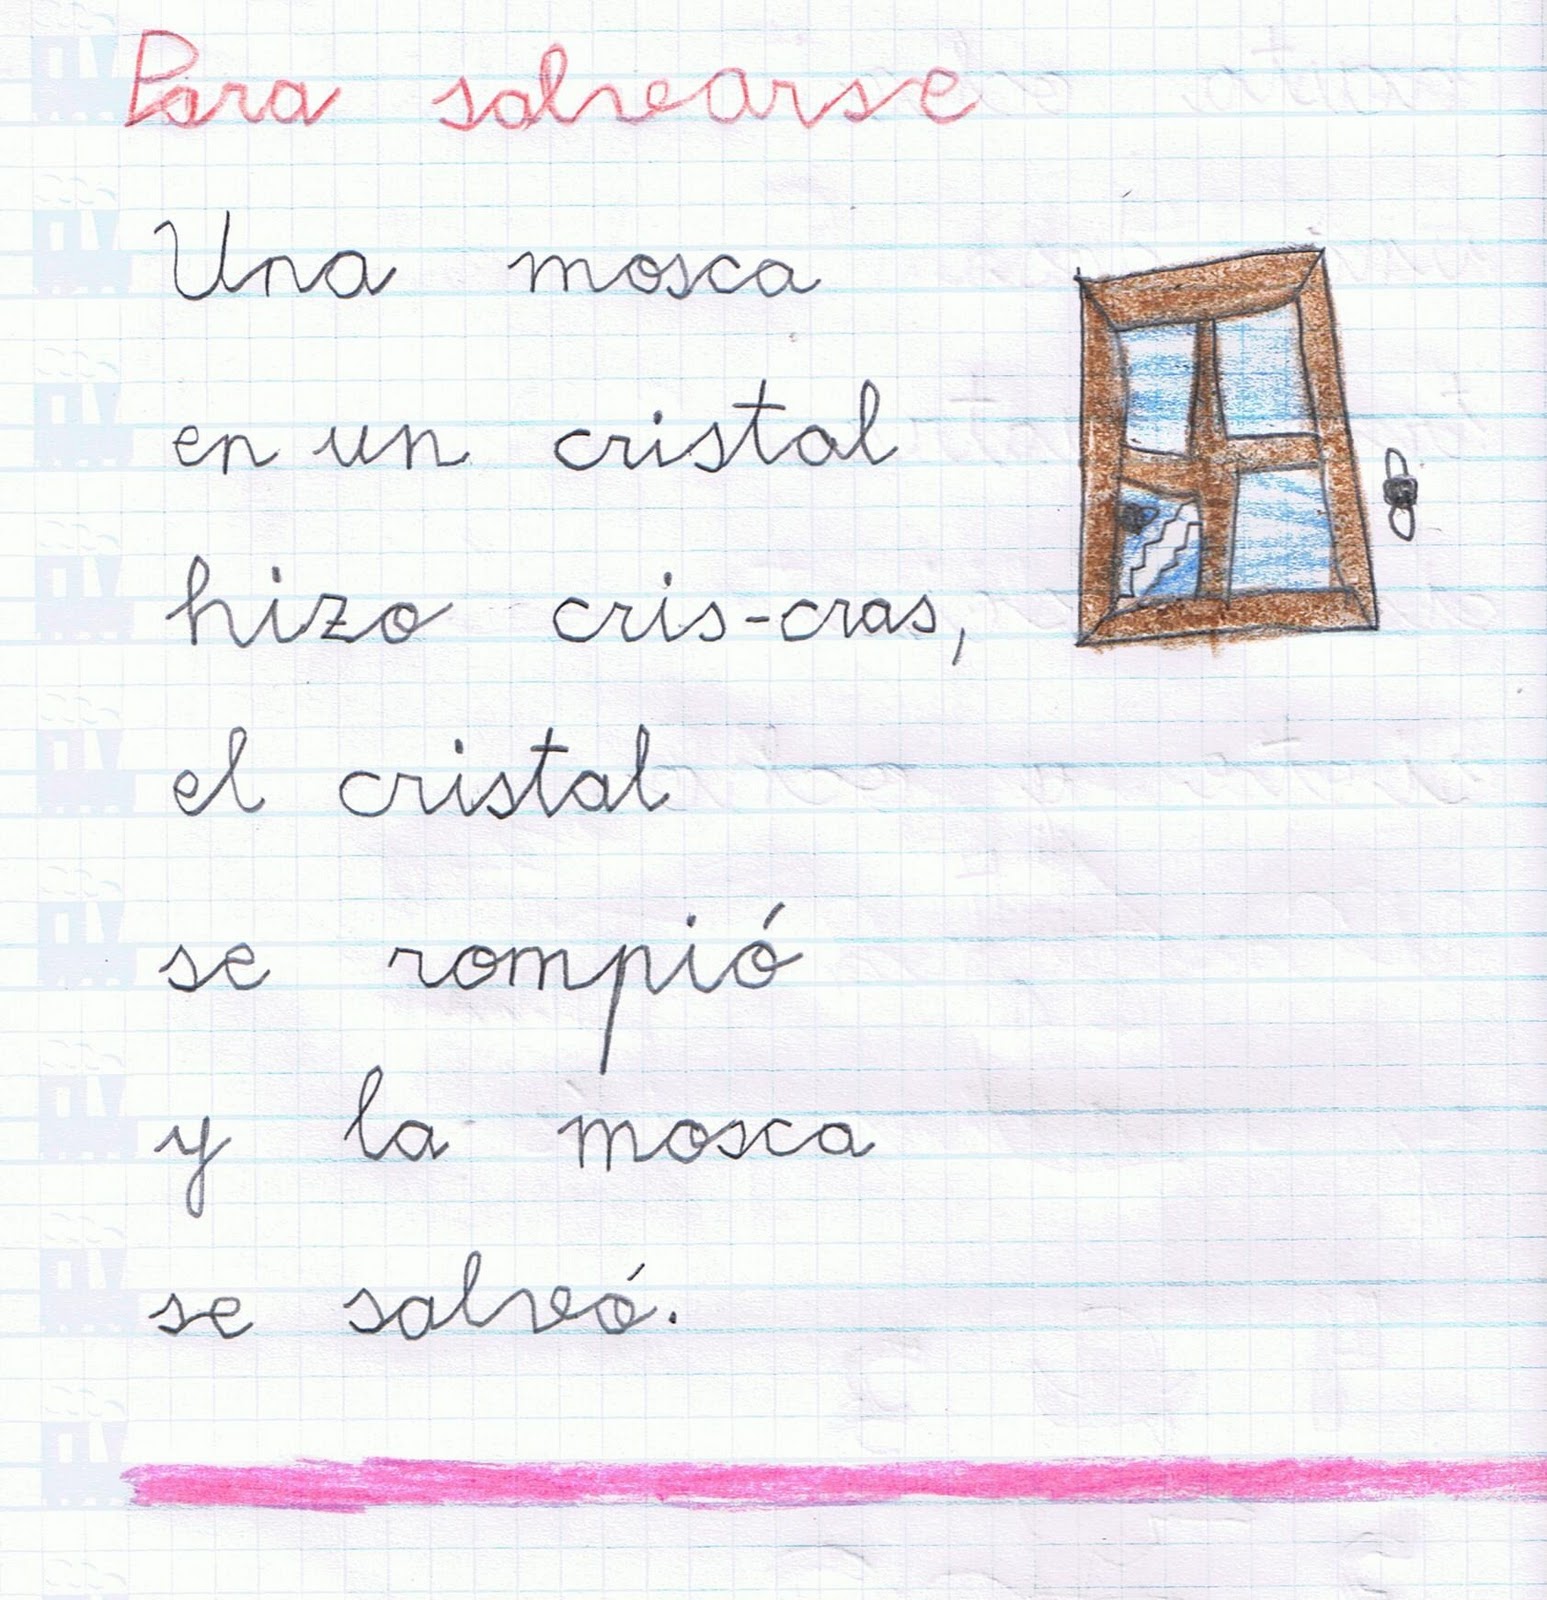 Para salvarse
Una mosca
en un cristal
hizo cris-cras,
el cristal
se rompió
y la mosca
se salvó.